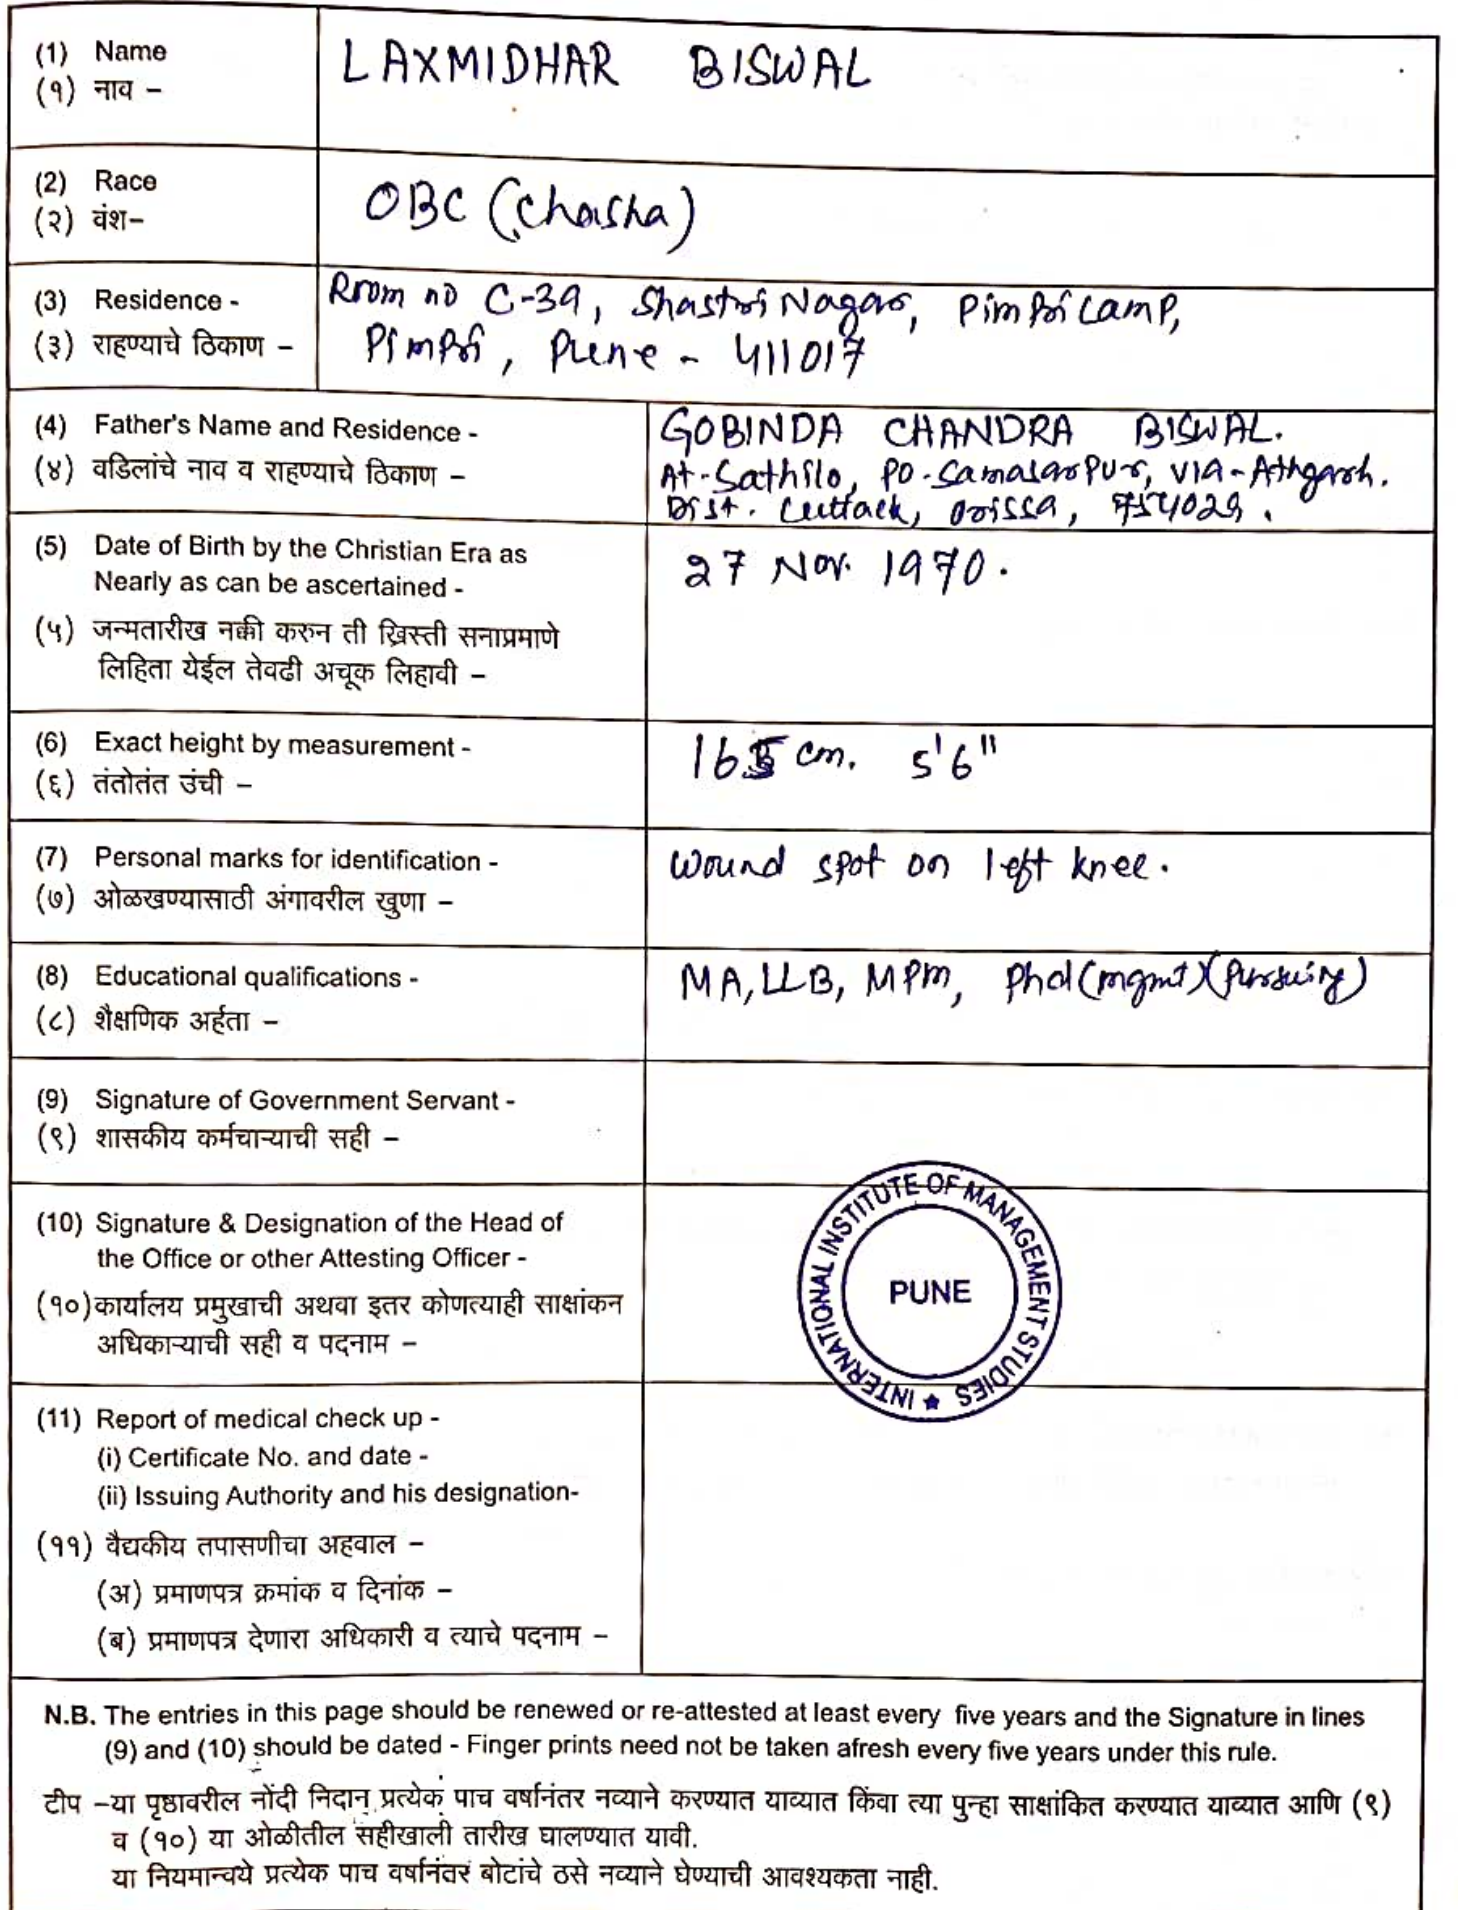 (1) Name
(१) नाव –
LAXMIDHAR BISWAL
(2) Race
(२) वंश–
OBC (Chasha)
(3) Residence -
(३) राहण्याचे ठिकाण –
Room no C-39, Shastri Nagar, Pimpri Camp,
Pimpri, Pune - 411017
(4) Father's Name and Residence -
(४) वडिलांचे नाव व राहण्याचे ठिकाण –
GOBINDA CHANDRA BISWAL.
At-Sathilo, PO-Samasarpur, via-Athgarh.
Dist. Cuttack, Orissa, 754029.
(5) Date of Birth by the Christian Era as
Nearly as can be ascertained -
(५) जन्मतारीख नक्की करुन ती ख्रिस्ती सनाप्रमाणे
लिहिता येईल तेवढी अचूक लिहावी –
27 Nov. 1970.
(6) Exact height by measurement -
(६) तंतोतंत उंची –
cm. 5'6"
(7) Personal marks for identification -
(७) ओळखण्यासाठी अंगावरील खुणा –
Wound spot on left knee.
(8) Educational qualifications -
(८) शैक्षणिक अर्हता –
MA, LLB, MPM, Phd (mgmt) (Pursuing)
(9) Signature of Government Servant -
(९) शासकीय कर्मचाऱ्याची सही –
(10) Signature & Designation of the Head of
the Office or other Attesting Officer -
(१०) कार्यालय प्रमुखाची अथवा इतर कोणत्याही साक्षांकन
अधिकाऱ्याची सही व पदनाम –
INTERNATIONAL INSTITUTE OF MANAGEMENT STUDIES ★
PUNE
(11) Report of medical check up -
(i) Certificate No. and date -
(ii) Issuing Authority and his designation-
(११) वैद्यकीय तपासणीचा अहवाल –
(अ) प्रमाणपत्र क्रमांक व दिनांक –
(ब) प्रमाणपत्र देणारा अधिकारी व त्याचे पदनाम –
N.B. The entries in this page should be renewed or re-attested at least every five years and the Signature in lines
(9) and (10) should be dated - Finger prints need not be taken afresh every five years under this rule.
टीप –या पृष्ठावरील नोंदी निदान प्रत्येक पाच वर्षानंतर नव्याने करण्यात याव्यात किंवा त्या पुन्हा साक्षांकित करण्यात याव्यात आणि (९)
व (१०) या ओळीतील सहीखाली तारीख घालण्यात यावी.
या नियमान्वये प्रत्येक पाच वर्षानंतर बोटांचे ठसे नव्याने घेण्याची आवश्यकता नाही.